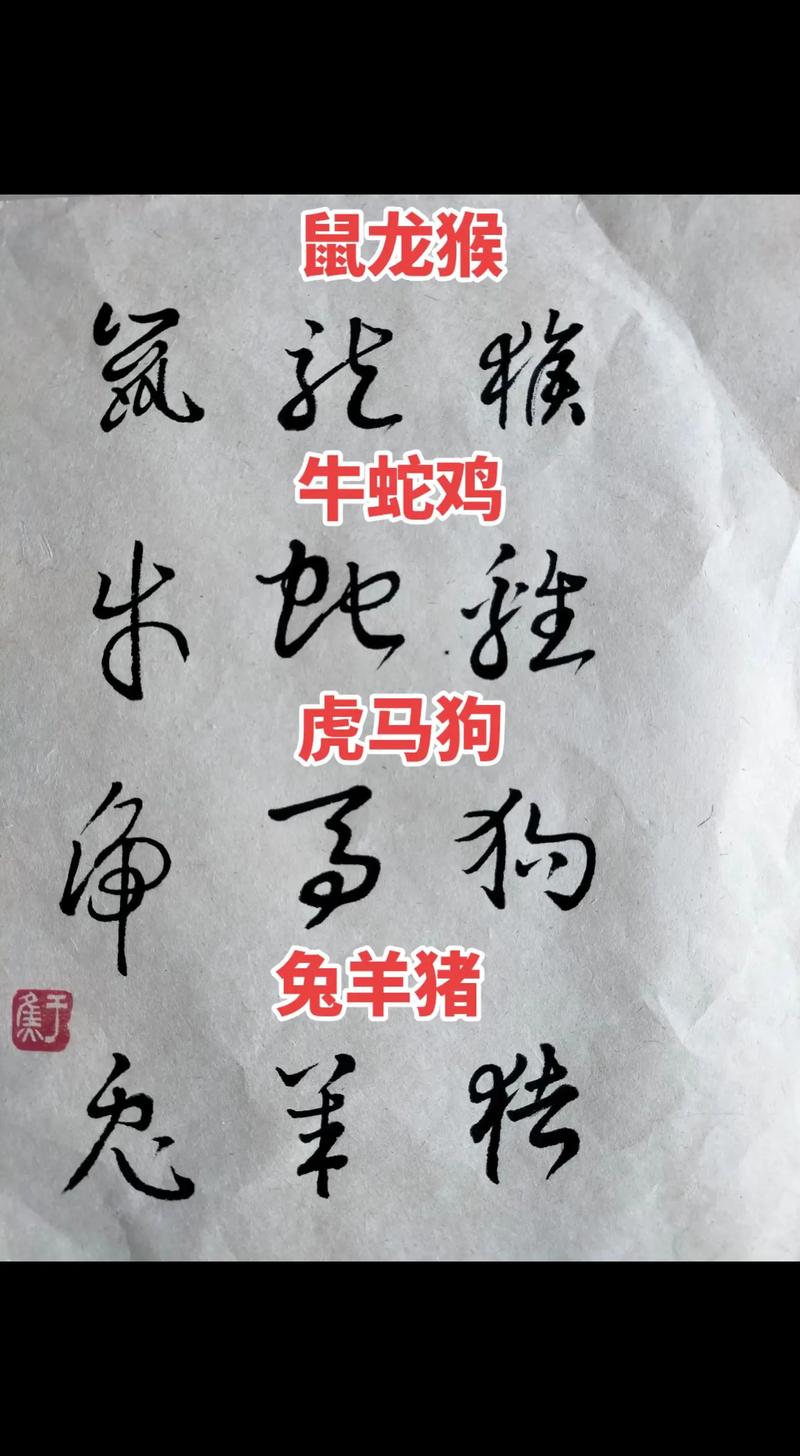 鼠龙猴
鼠龍猴
牛蛇鸡
牛蛇雞
虎马狗
虎馬狗
兔羊猪
兔羊猪